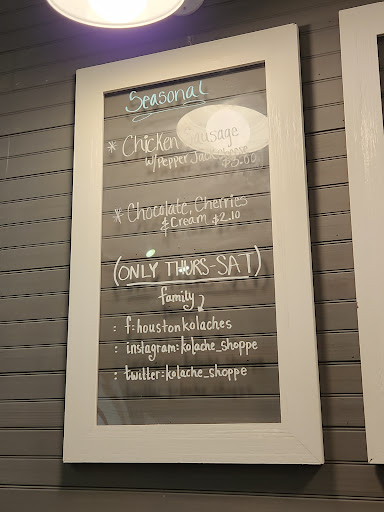 Seasonal
* Chicken Sausage
w/Pepper Jack Cheese
$3.00
* Chocolate, Cherries
& Cream $2.10
(ONLY THURS-SAT)
family
: f:houstonkolaches
: instagram:kolache_shoppe
: twitter:kolache_shoppe